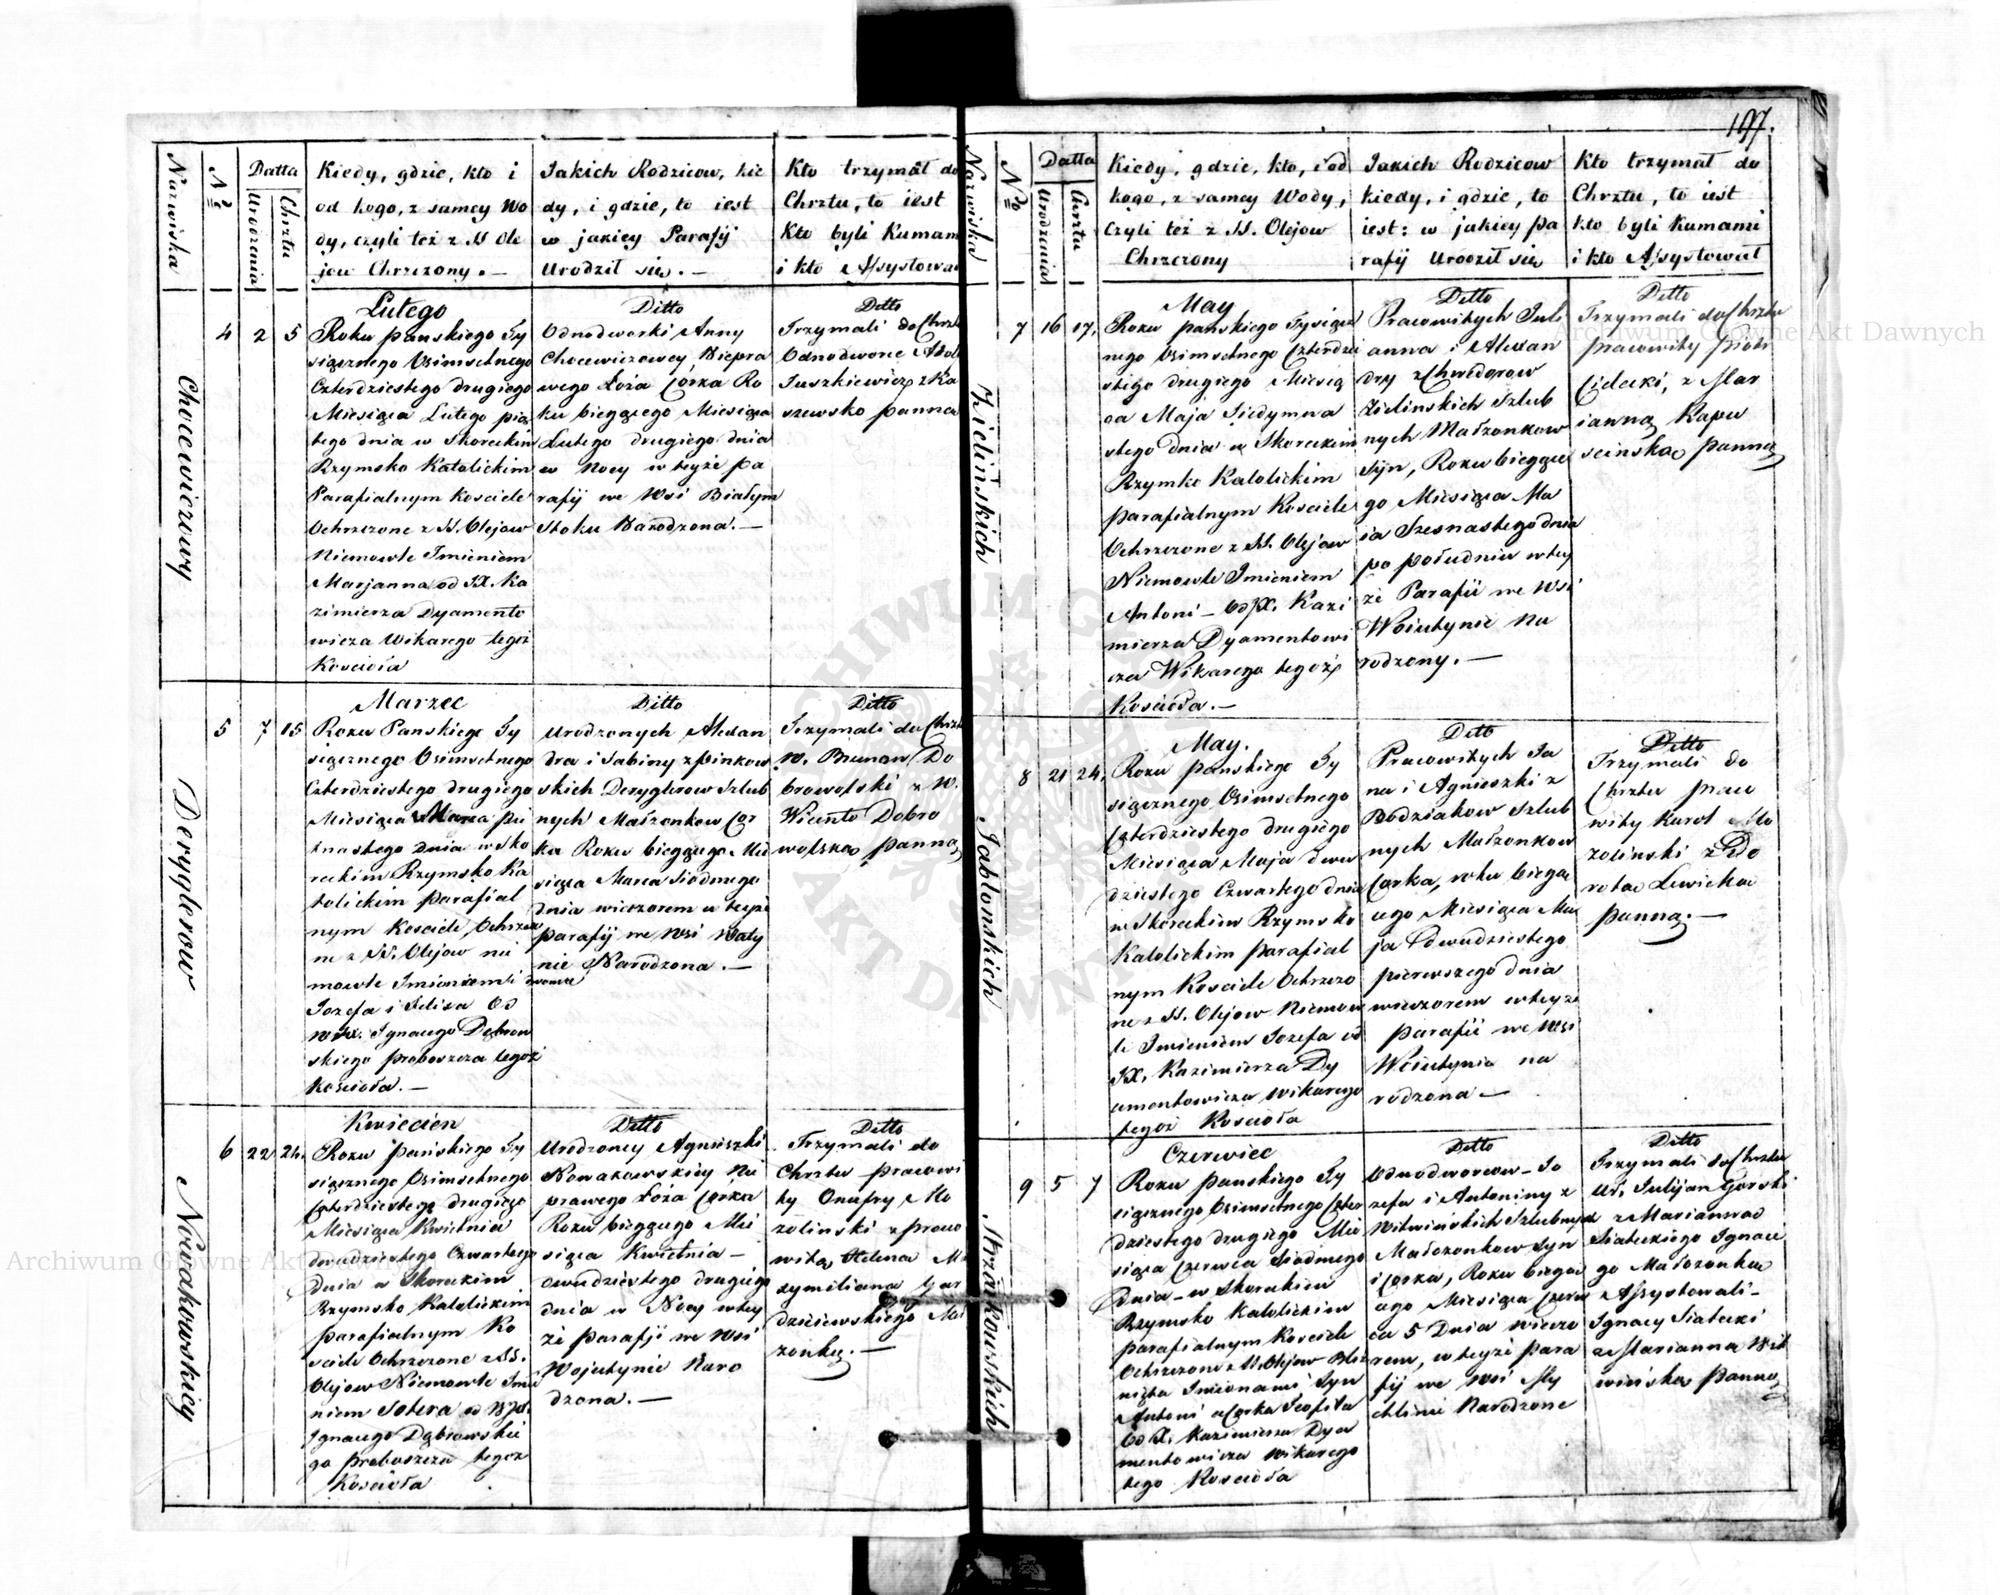 197.
Nazwiska
Nro
Datta
Urodzenia
Chrztu
Kiedy, gdzie, kto i
od kogo, z samey Wo
dy, czyli też z SS Ole
jow Chrzczony. —
Jakich Rodzicow, kie
dy, i gdzie, to iest
w jakiey Parafij
Urodził się. —
Kto trzymał do
Chrztu, to iest
Kto byli Kumam
i kto Assystował
Chocewiczowy
4 2 5
Lutego
Roku Pańskiego Ty
siącznego Osimsetnego
Czterdziestego drugiego
Miesiąca Lutego pią
tego dnia w Skoreckim
Rzymsko Katolickim
Parafialnym Kosciele
Ochrzczone z SS. Olejow
Niemowle Imieniem
Marjanna od JX. Ka
zimierza Dyamento
wicza Wikarego tegoż
Kosciola
Ditto
Odnodworki Anny
Chocewiczowey Niepra
wego Łoża Córka Ro
ku bieggcego Miesiąca
Lutego drugiego dnia
w Nocy w teyże pa
rafij we Wsi Białym
Stoku Narodzona. —
Ditto
Trzymali do Chrztu
Odnodworc
Juszkiewicz z Ka
szewsko panna
Deryglerow
5 7 15
Marzec
Roku Panskiego Ty
siącznego Osimsetnego
Czterdziestego drugiego
Miesiąca Marca pię
tnastego dnia w Sko
reckim Rzymsko Ka
tolickim Parafial
nym Kosciele, Ochrzczo
ne z SS. Olejow nie
mowle Imieniem dwoma
Jozefa i Feliza Od
W JX. Ignacego Dąbrow
skiego proboszcza tegoż
Kosciola. —
Ditto
Urodzonych Alexan
dra i Sabiny z Pinkow
skich Deryglerow Szlub
nych Małżonkow Cor
ka Roku bieggcego Mie
siąca Marca Siodmego
dnia wieczorem w teyże
parafij we Wsi Waty
nie Narodzona. —
Ditto
Trzymali do Chrztu
W. Brunow Do
browolski z W.
Wicento Dobro
wolska Panna
Nowakowskiey
6 22 24.
Kwiecien
Roku Pańskiego Ty
siącznego Osimsetnego
Czterdziestego drugiego
Miesiąca Kwietnia
dwudziestego Czwartego
Dnia w Skoreckim
Rzymsko Katolickim
parafialnym Ko
sciele Ochrzczone z SS.
Olejow Niemowle Imie
niem Sotera od W JX.
Ignacego Dąbrowskie
go Proboszcza tegoz
Kosciola
Ditto
Urodzoney Agnieszki
Nowakowskiey Nie
prawego Łoża Corka
Roku bieggcego Mie
siąca Kwietnia —
dwudziestego drugiego
dnia w Nocy w tey
że parafji we Wsi
Wojutynie Naro
dzona. —
Ditto
Trzymali do
Chrztu pracowi
ty Onufry Mo
zolinski z praco
witą Helena M
xymiliana Gar
dziciewskiego Mał
żonkę. —
Nazwiska
Nro
Datta
Urodzenia
Chrztu
Kiedy, gdzie, kto, i od
kogo, z samey Wody,
Czyli też z SS. Olejow
Chrzczony
Jakich Rodzicow
kiedy, i gdzie, to
iest: w jakiey Pa
rafij Urodził się
Kto trzymał do
Chrztu, to iest
kto byli Kumami
i kto Assystował
Zielińskich
7 16 17.
May
Roku Pańskiego Tysiącz
nego Osimsetnego Czterdzie
stego drugiego Miesią
ca Maja Siedymna
stego Dnia w Skoreckim
Rzymko Katolickim
parafialnym Kosciele
Ochrzczone z SS. Olejow
Niemowle Imieniem
Antoni — Od JX. Kazi
mierza Dyamentowi
cza Wikarego tegoż
Kosciola. —
Ditto
Pracowitych Juli
anna i Alexan
dry z Chwedorow
Zielinskich Szlub
nych Małżonkow
Syn, Roku bieggce
go Miesiąca Ma
ia Szesnastego dnia
po południu w tey
że Parafii we Wsi
Woiutynie Na
rodzony. —
Ditto
Trzymali do Chrztu
pracowity Piotr
Cidecki, z Mar
ianną Kapu
scinska Panną
Jabłonskich
8 21 24.
May.
Roku Pańskiego Ty
siącznego Osimsetnego
Czterdziestego drugiego
Miesiąca Maja dwu
dziestego Czwartego dnia
w Skoreckim Rzymsko
Katolickim parafial
nym Kosciele Ochrzczo
ne z SS. Olejow Niemow
le Imieniem Jozefa od
JX. Kazimierza Dy
amentowicza Wikarego
tegoż Kosciola
Ditto
Pracowitych Ja
na i Agnieszki z
Bodziakow Szlub
nych Małżonkow
Corka, roku biegg
cego Miesiąca Ma
ja dwudziestego
pierwszego dnia
wieczorem w teyże
parafii we Wsi
Woiutynie na
rodzona —
Ditto
Trzymali do
Chrztu praco
wity Karol Mo
zolinski z Do
rota Lewicka
panna. —
Strzałkowskich
9 5 7
Czerwiec
Roku Pańskiego Ty
siącznego Osimsetnego Czter
dziestego drugiego Mie
siąca Czerwca Siodmego
Dnia — w Skoreckim
Rzymsko Katolickim
parafialnym Kosciele
Ochrzczone z SS. Olejow Bliz
nięta Imionami Syn
Antoni a Corka Teofila
Od X. Kazimierza Dya
mentowicza Wikarego
tego Kosciola
Ditto
Odnodworcow — Jo
zefa i Antoniny z
Witwińskich Szlubnych
Małżonkow Syn
i Corka, Roku biegg
cego Miesiąca Czerw
ca 5 Dnia wieczo
rem, w teyże para
fij we Wsi My
chlinie Narodzone
Ditto
Trzymali do Chrztu
Ur. Julijan Gorski
z Marianną
Siateckiego Ignac
go Małżonka
Assystowali —
Ignacy Siatecki
z Marianna Wit
wińska Panną